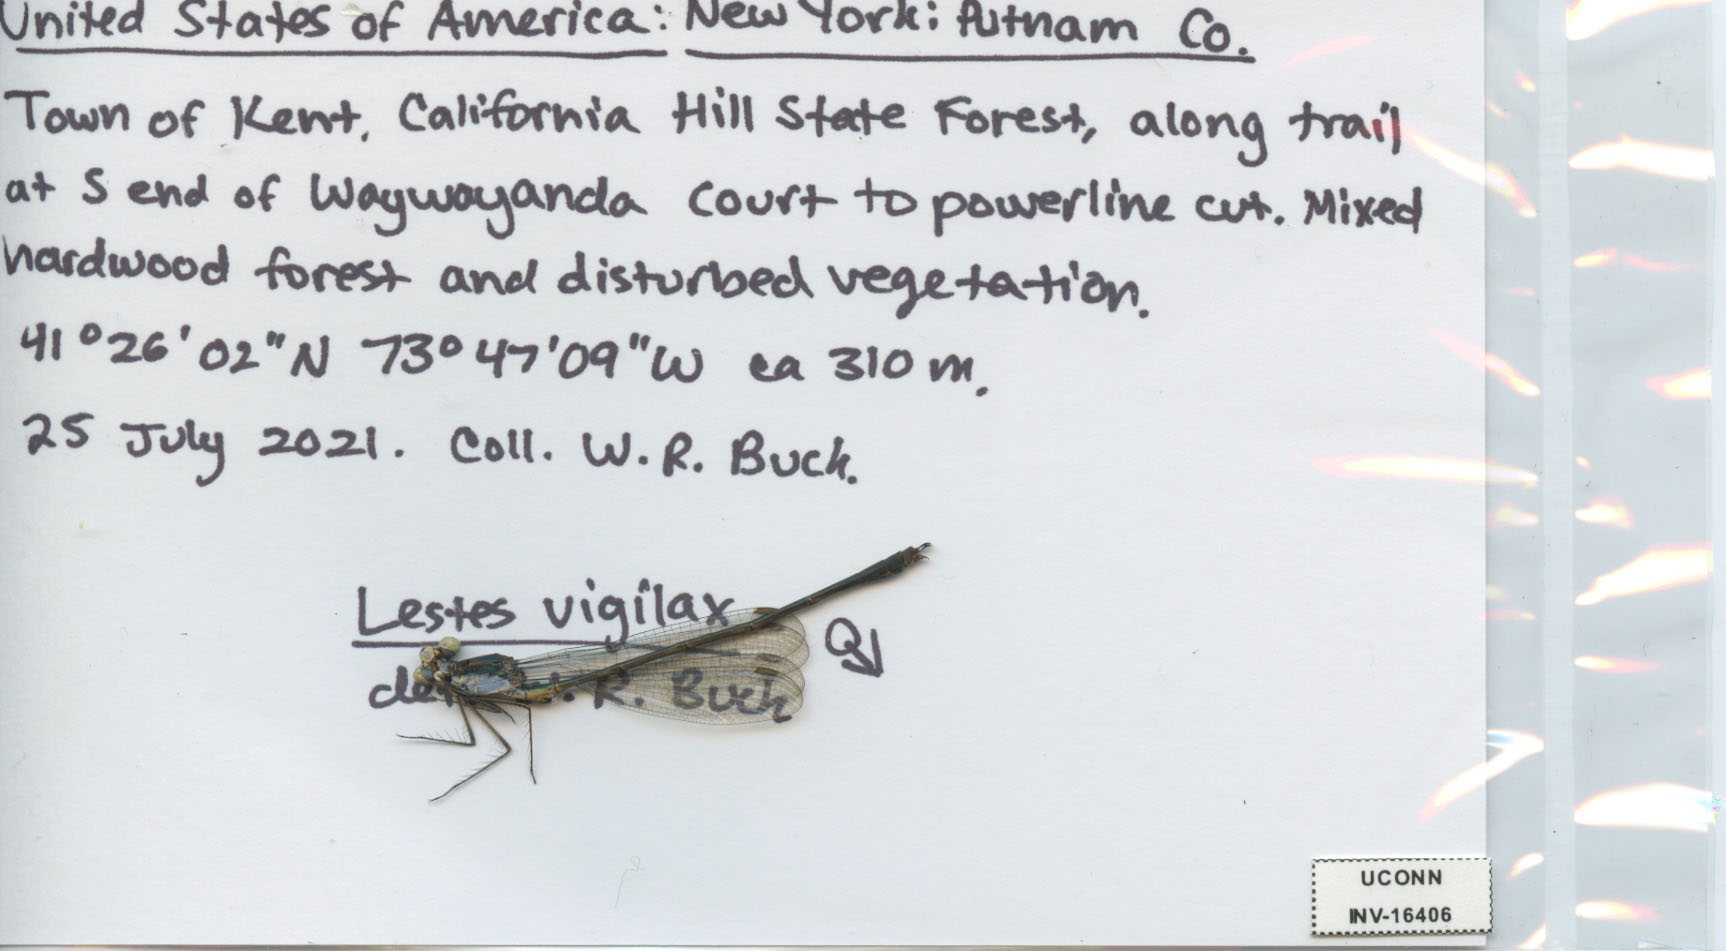 United States of America: New York: Putnam Co.
Town of Kent, California Hill State Forest, along trail
at S end of Waywayanda Court to powerline cut. Mixed
hardwood forest and disturbed vegetation.
41°26'02"N 73°47'09"W ca 310 m.
25 July 2021. Coll. W.R. Buck.
Lestes vigilax
R. Buck
UCONN
INV-16406